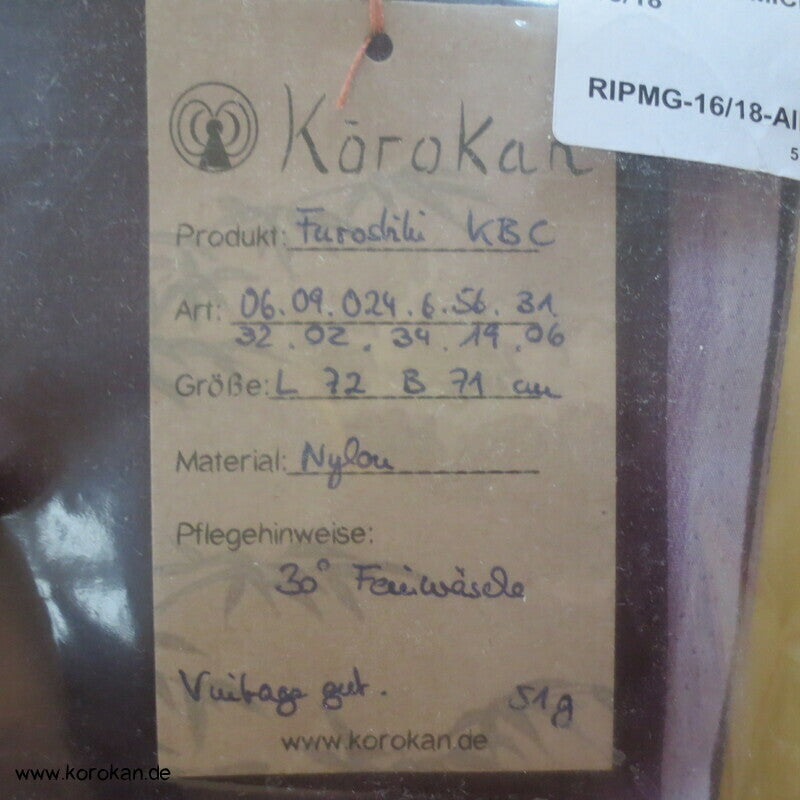 RIPMG-16/18-Al
5
Kōrokan
Produkt: Furoshiki KBC
Art: 06.09.024.6.56.31
32.02.34.19.06
Größe: L 72 B 71 cm
Material: Nylon
Pflegehinweise:
30° Feinwäsche
Vintage gut. 51g
www.korokan.de
www.korokan.de